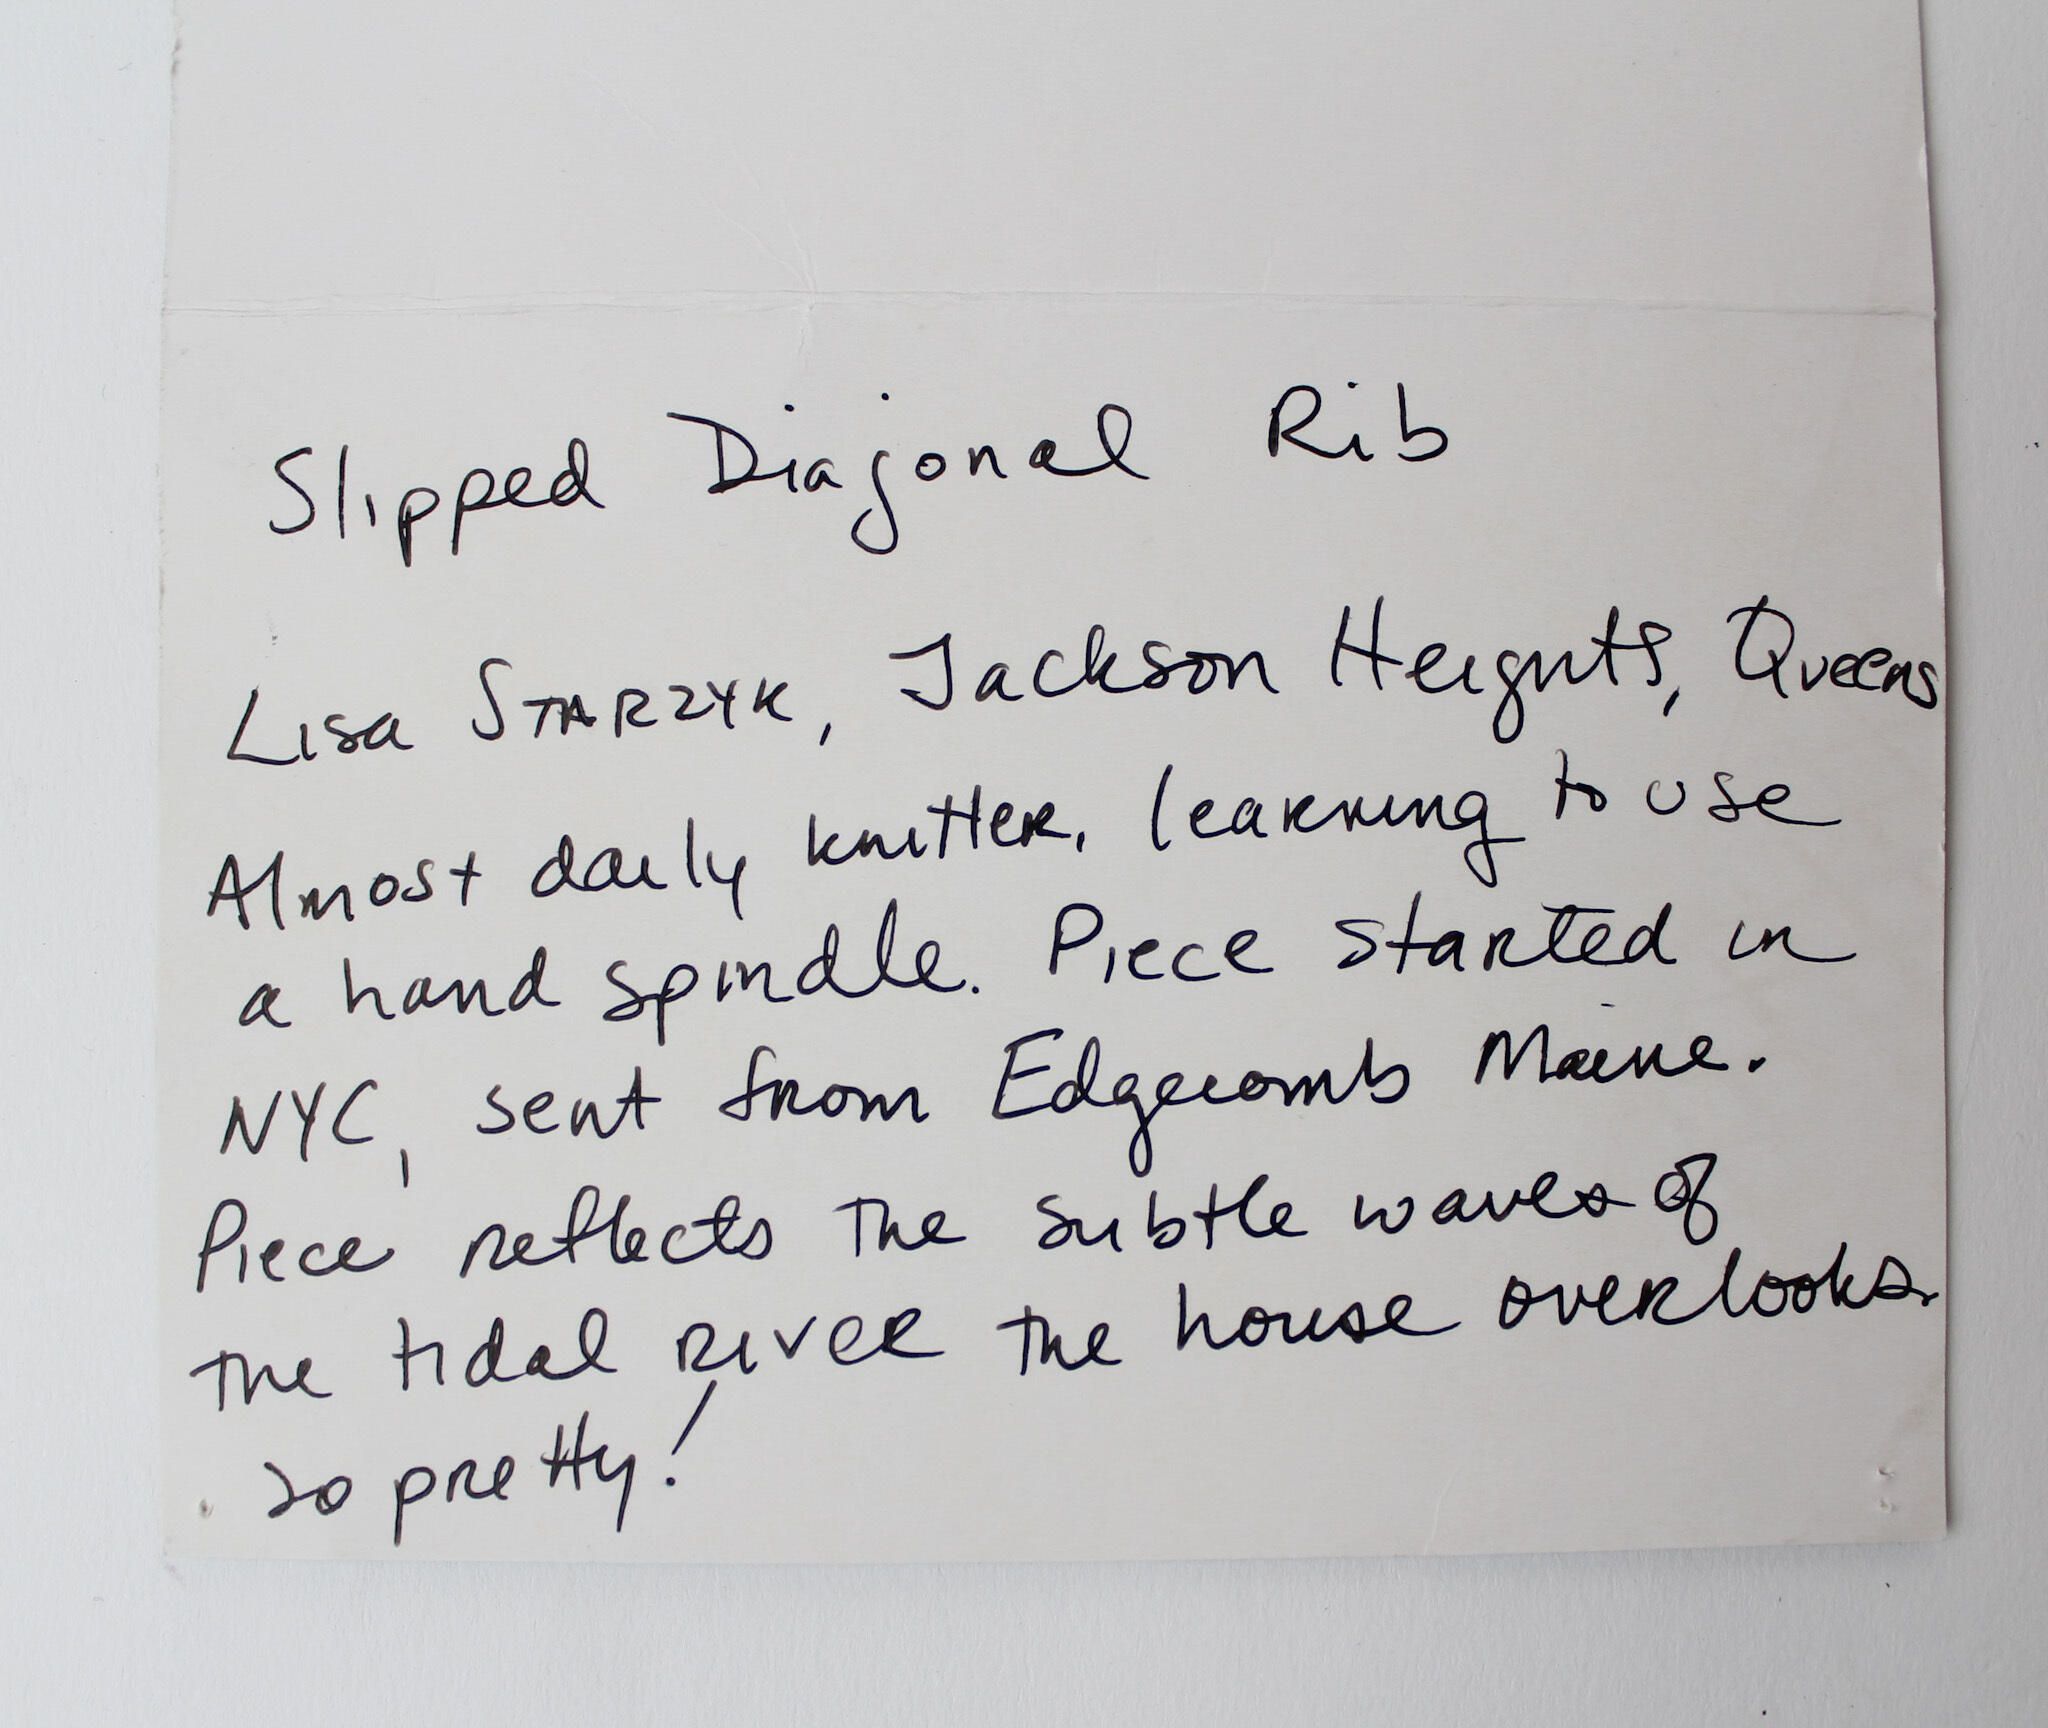 Slipped Diagonal Rib
Lisa STARZYK, Jackson Heights, Queens
Almost daily knitter, learning to use
a hand spindle. Piece started in
NYC, sent from Edgecomb Maine.
Piece reflects the subtle waves of
the tidal river the house overlooks.
so pretty!